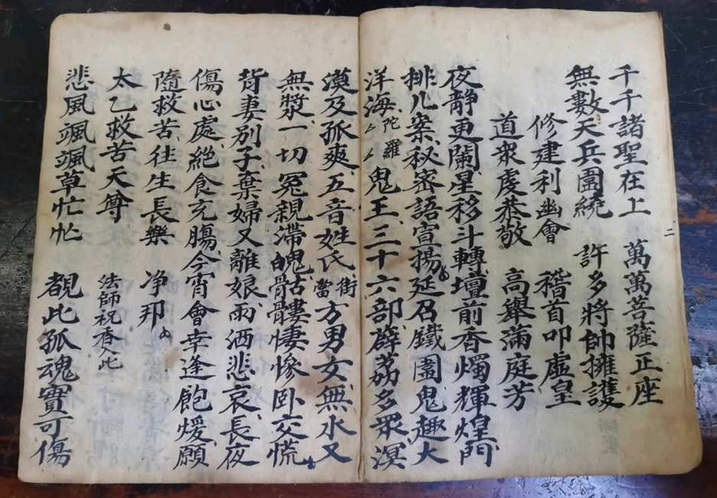 千千諸聖在上 萬萬菩薩正座
無數天兵圍統 許多將帥擁護
修建利幽會 稽首叩虛皇
道衆虔恭敬 高舉滿庭芳
夜靜更闌星移斗轉壇前香燭輝煌門
排几案秘密語宣揚延召鐵圍鬼趣大
洋海陀羅鬼王三十六部薜荔多衆溟
漠及孤爽五音姓氏街當方男女無水又
無漿一切冤親滯魄骷髏悽慘卧交慌
背妻別子棄婦又離娘雨洒悲哀長夜
傷心處絕食充腸今宵會幸逢飽煖願
隨救苦往生長樂 净邦
太乙救苦天尊 法師祝香入此
悲風颯颯草忙忙 覩此孤魂實可傷
二